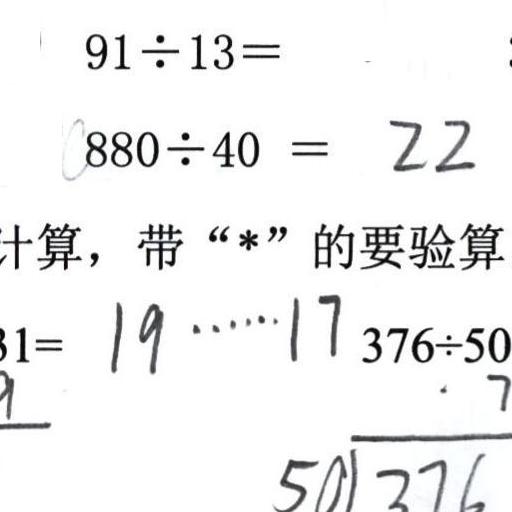 91÷13=
880÷40 = 22
计算，带“*”的要验算
31= 19……17 376÷50
9 7
50 376